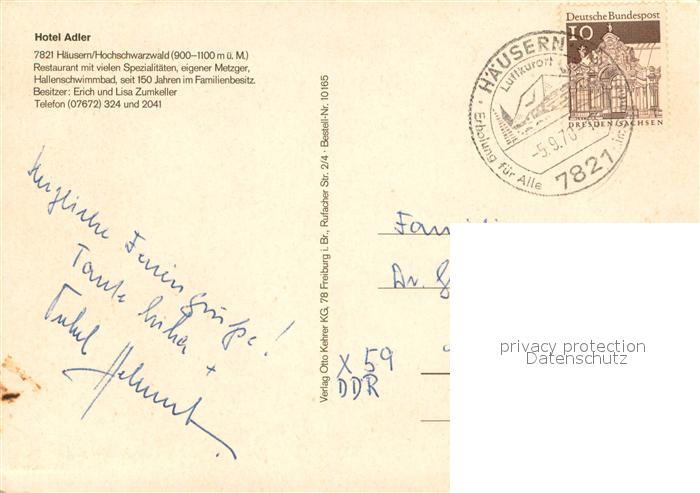 Hotel Adler
7821 Häusern/Hochschwarzwald (900–1100 m ü. M.)
Restaurant mit vielen Spezialitäten, eigener Metzger,
Hallenschwimmbad, seit 150 Jahren im Familienbesitz.
Besitzer: Erich und Lisa Zumkeller
Telefon (07672) 324 und 2041
Herzliche Feriengrüße!
Tante
+
Onkel
Helmut
Verlag Otto Kehrer KG, 78 Freiburg i. Br., Rufacher Str. 2/4 · Bestell-Nr. 10165
Deutsche Bundespost
10
DRESDEN/SACHSEN
HÄUSERN
Luftkurort
-5.9.70
Erholung für Alle
7821
Dr.
X 59
DDR
privacy protection
Datenschutz